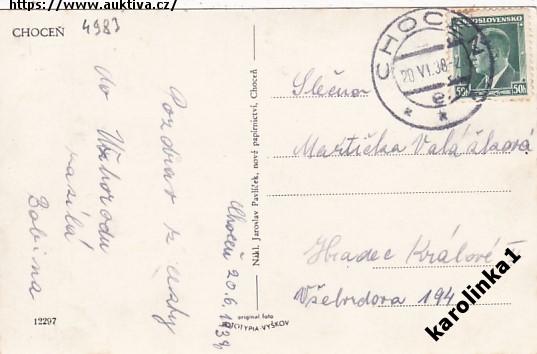 https://www.auktiva.cz/
CHOCEŇ
4983
Pozdrav z cesty
do Užhorodu
zasílá
Bobina
Choceň 20.6.1938
12297
Nákl. Jaroslav Pavlíček, nové papírnictví, Choceň
original foto
FOTOTYPIA-VYŠKOV
CHOCEŇ
20 VI.38
e
* *
ČESKOSLOVENSKO
50h 50h
Slečna
Martička Valášková
Hradec Králové
Všehrdova 194
karolinka1